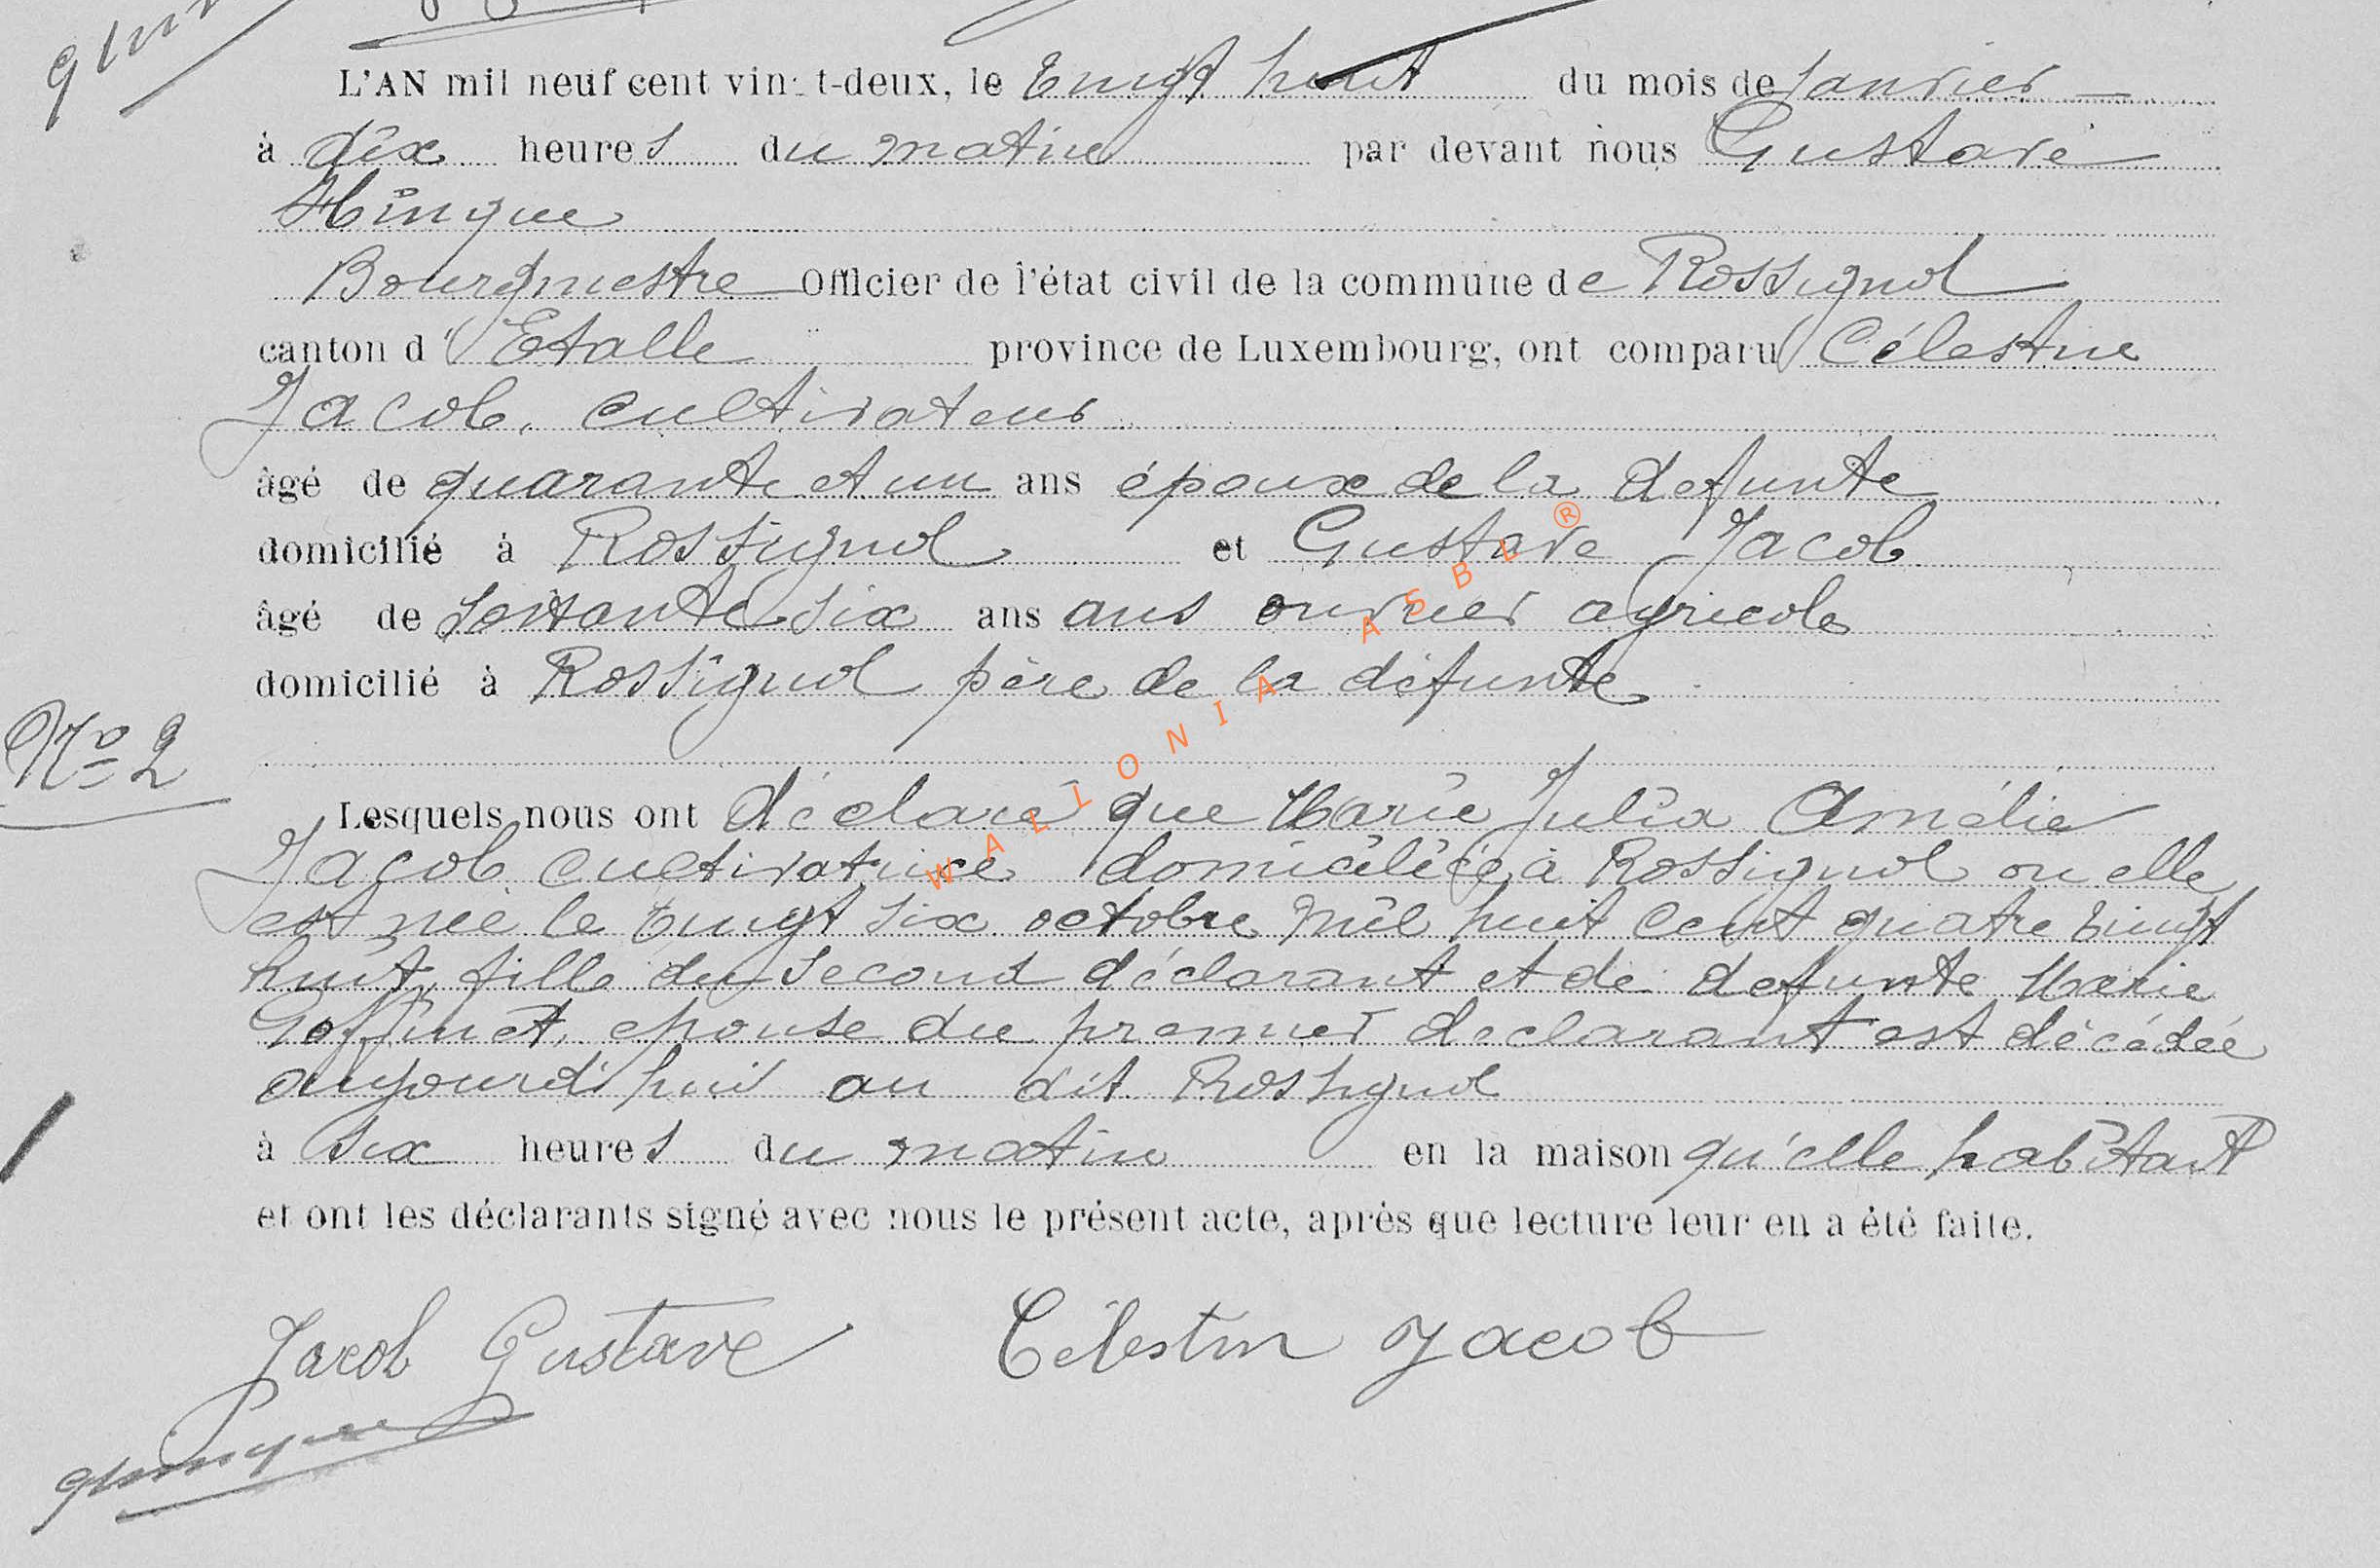 L'AN mil neuf cent vingt-deux, le vingt huit du mois de janvier
à dix heures du matin par devant nous Gustave
Hinque
Bourgmestre Officier de l'état civil de la commune de Rossignol
canton d'Etalle province de Luxembourg, ont comparu Célestin
Jacob, cultivateur
âgé de quarante et un ans époux de la defunte
domicilié à Rossignol et Gustave Jacob
âgé de soixante six ans ans ouvrier agricole
domicilié à Rossignol père de la défunte
No 2
Lesquels nous ont déclaré que Marie Julia Amélie
Jacob cultivatrice domiciliée à Rossignol ou elle
est née le vingt six octobre mil huit cent quatre vingt
huit, fille du second déclarant et de defunte Marie
Goffinet, epouse du premier declarant est décédée
aujourd'hui au dit Rossignol
à six heures du matin en la maison qu'elle habitait
et ont les déclarants signé avec nous le présent acte, après que lecture leur en a été faite.
Jacob Gustave Célestin Jacob
GHinque
WALLONIA ASBL ®